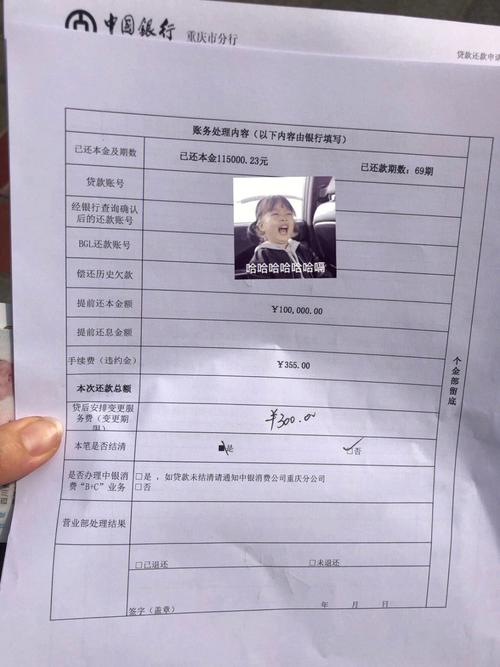 中国银行 重庆市分行
贷款还款申请
账务处理内容（以下内容由银行填写）
已还本金及期数 已还本金115000.23元 已还款期数：69期
贷款账号
经银行查询确认
后的还款账号
BGL还款账号
哈哈哈哈哈哈嗝
偿还历史欠款
提前还本金额 ¥100,000.00
提前还息金额
手续费（违约金） ¥355.00
本次还款总额
贷后安排变更服
务费（变更期
限） ¥300.00
本笔是否结清 ■是 ☑否
是否办理中银消
费“B+C”业务
□是，如贷款未结清请通知中银消费公司重庆分公司
□否
营业部处理结果
□已退还 □未退还
签字（盖章） 年 月 日
个金部留底